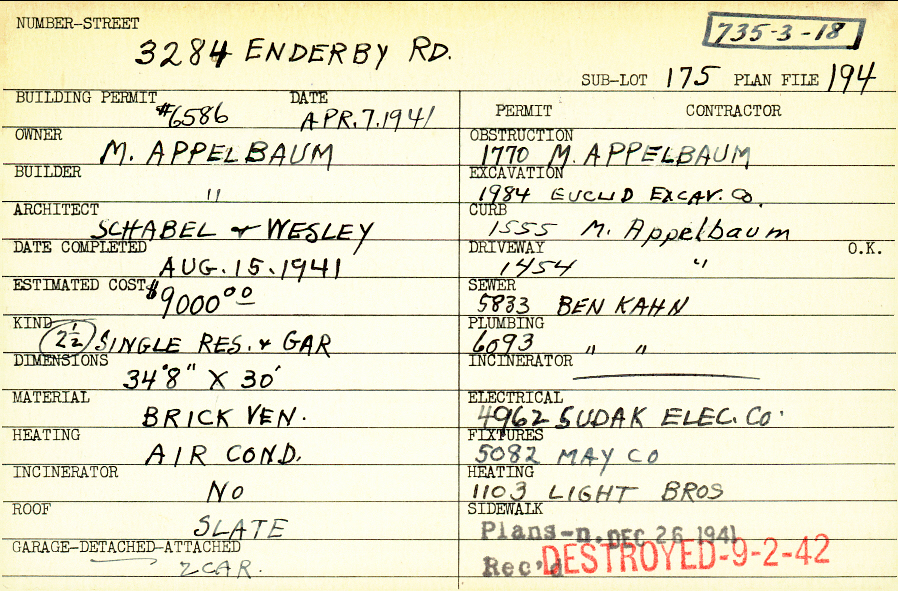 NUMBER-STREET
3284 ENDERBY RD.
735-3-18
SUB-LOT 175 PLAN FILE 194
BUILDING PERMIT DATE
#6586 APR. 7. 1941
OWNER
M. APPELBAUM
BUILDER
"
ARCHITECT
SCHABEL & WESLEY
DATE COMPLETED
AUG. 15. 1941
ESTIMATED COST
$9000 00
KIND
2 1/2 SINGLE RES. & GAR
DIMENSIONS
34'8" X 30'
MATERIAL
BRICK VEN.
HEATING
AIR COND.
INCINERATOR
NO
ROOF
SLATE
GARAGE-DETACHED-ATTACHED
2 CAR.
PERMIT CONTRACTOR
OBSTRUCTION
1770 M. APPELBAUM
EXCAVATION
1984 EUCLID EXCAV. CO.
CURB
1555 M. Appelbaum
DRIVEWAY O.K.
1454 "
SEWER
5833 BEN KAHN
PLUMBING
6093 " "
INCINERATOR
ELECTRICAL
4962 SUDAK ELEC. CO.
FIXTURES
5082 MAY CO
HEATING
1103 LIGHT BROS
SIDEWALK
Plans-n. DEC 26 1941
Rec'd DESTROYED-9-2-42